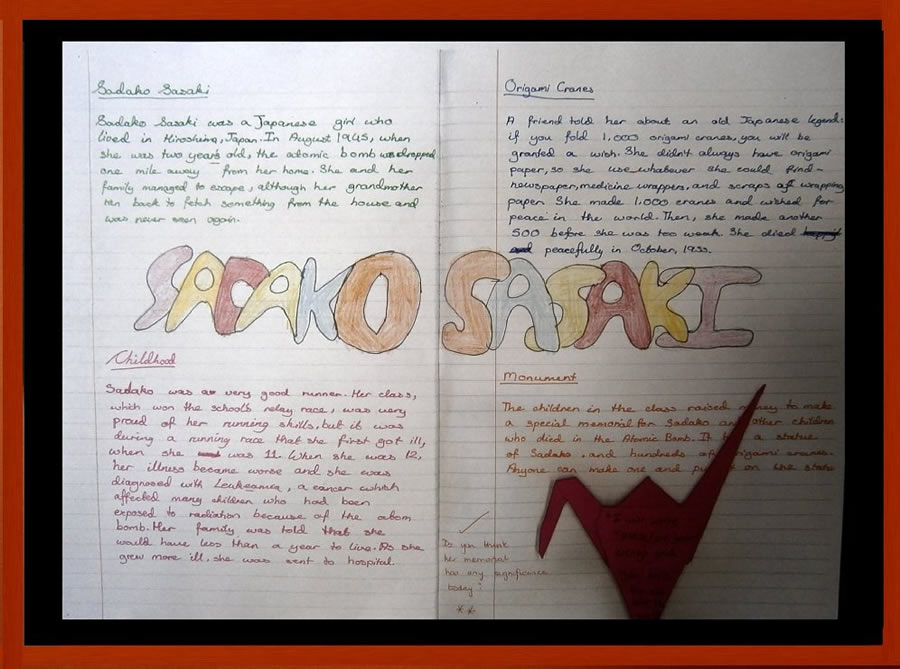 Sadako Sasaki
Sadako Sasaki was a Japanese girl who
lived in Hiroshima, Japan. In August 1945, when
she was two years old, the atomic bomb was dropped
one mile away from her home. She and her
family managed to escape, although her grandmother
ran back to fetch something from the house and
was never seen again.
SADAKO SASAKI
Childhood
Sadako was a very good runner. Her class,
which won the school's relay race, was very
proud of her running skills, but it was
during a running race that she first got ill,
when she was 11. When she was 12,
her illness became worse and she was
diagnosed with Leukeamia, a cancer which
affected many children who had been
exposed to radiation because of the atom
bomb. Her family was told that she
would have less than a year to live. As she
grew more ill, she was sent to hospital.
Origami Cranes
A friend told her about an old Japanese legend:
if you fold 1,000 origami cranes, you will be
granted a wish. She didn't always have origami
paper, so she use whatever she could find-
newspaper, medicine wrappers, and scraps of wrapping
paper. She made 1,000 cranes and wished for
peace in the world. Then, she made another
500 before she was too weak. She died
peacefully in October, 1955.
Monument
The children in the class raised money to make
a special memorial for Sadako and other children
who died in the Atomic Bomb. It a statue
of Sadako, and hundreds of origami cranes.
Anyone can make one and on the
Do you think
her memorial
has any significance
today?
**